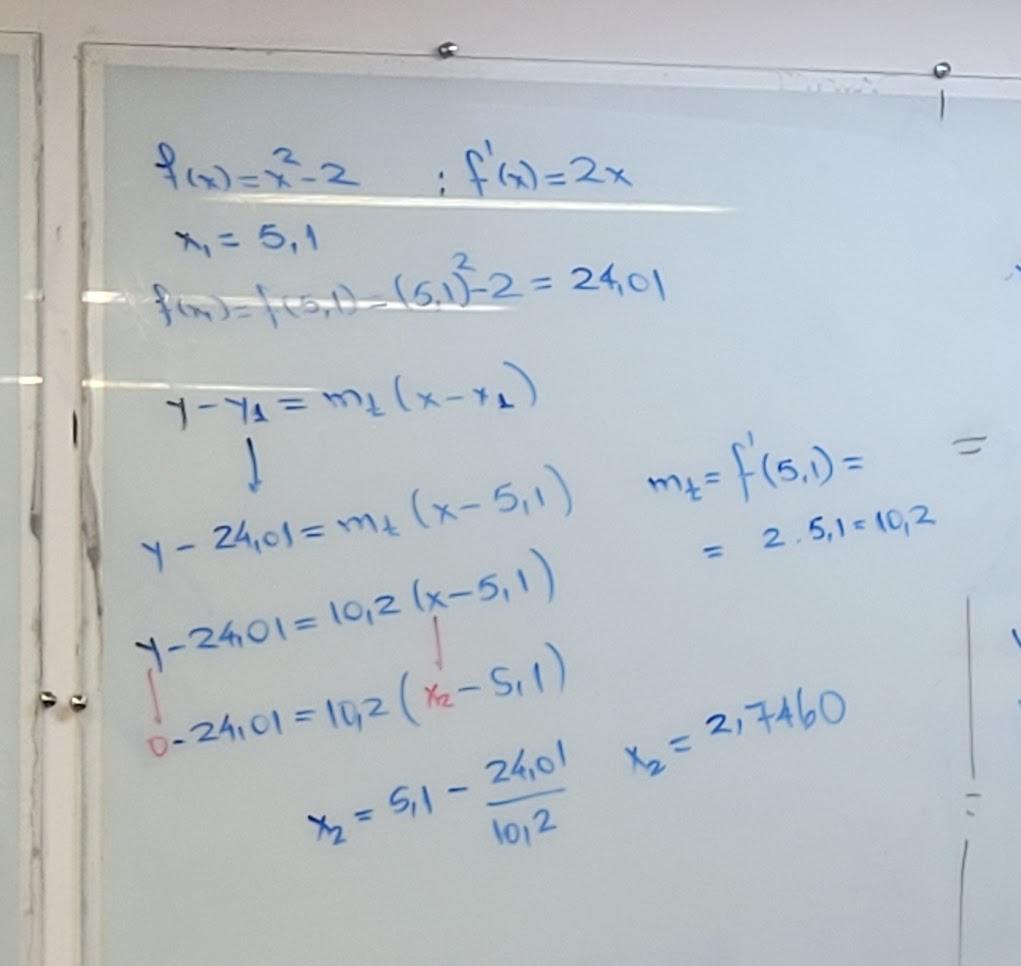 f(x)=x²-2 ; f'(x)=2x
x₁= 5,1
f(x₁)=f(5,1)=(5,1)²-2=24,01
y-y₁=mₜ(x-x₁)
↓
y-24,01=mₜ(x-5,1) mₜ=f'(5,1)=
= 2.5,1=10,2
y-24,01=10,2(x-5,1)
0-24,01=10,2(x₂-5,1)
x₂=5,1-24,01/10,2 x₂=2,7460